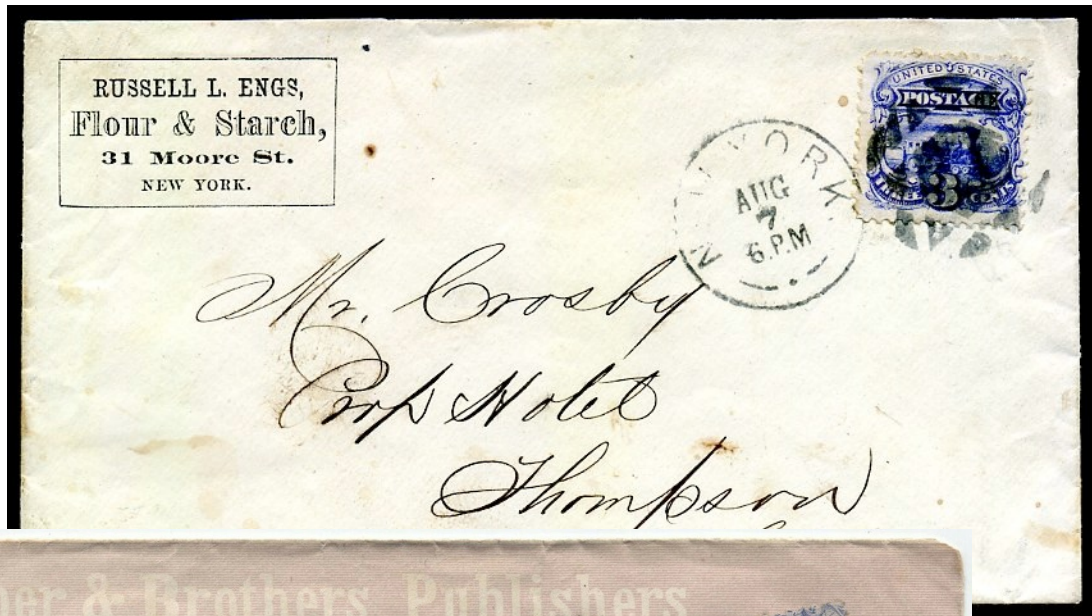 RUSSELL L. ENGS,
Flour & Starch,
31 Moore St.
NEW YORK.
UNITED STATES
POSTAGE
3
CENTS
YORK
AUG
7
6.P.M
Mr. Crosby
Prop Hotel
Thompson
& Brothers Publishers